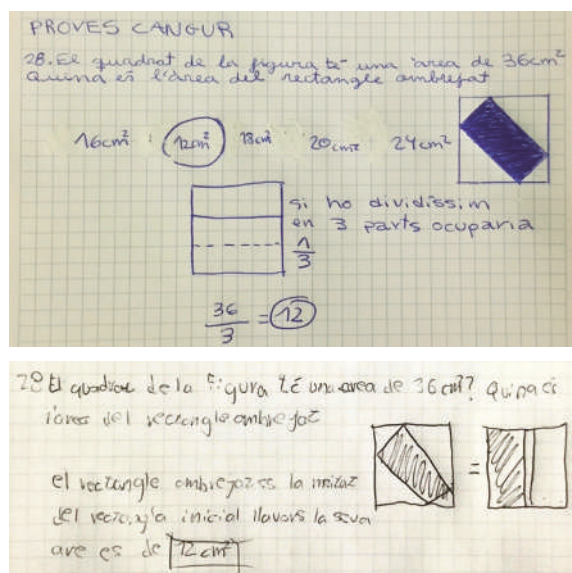 PROVES CANGUR
28. El quadrat de la figura té una àrea de 36cm²
Quina és l'àrea del rectangle ombrejat
16cm² 12cm² 18cm² 20cm² 24cm²
si ho dividíssim
en 3 parts ocuparia
1
3
36
3
= 12
28 El quadrat de la figura té una area de 36 cm²? Quina és
del rectangle ombrejat
=
el rectangle ombrejat es la meitat
del inicial llavors la seva
are es de 12 cm²